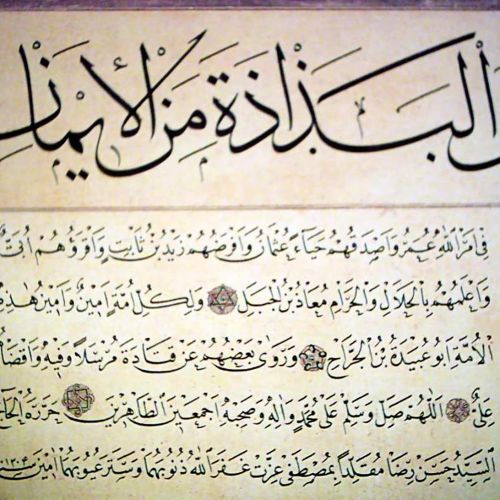 البذاذة من الإيمان
في امر الله عمر واصدقهم حياء عثمان وافرضهم زيد بن ثابت واقرؤهم ابي
واعلمهم بالحلال والحرام معاذ بن الجبل ولكل امة امين وامين هذه
الامة ابو عبيدة بن الجراح وروى بعضهم عن قتادة مرسلا وفيه واقضا
علي اللهم صل وسلم على محمد واله وصحبه اجمعين الطاهرين حرره الحاج
السيد حسن رضا مقلدا بمصطفى عزت غفر الله ذنوبهما وستر عيوبهما امين